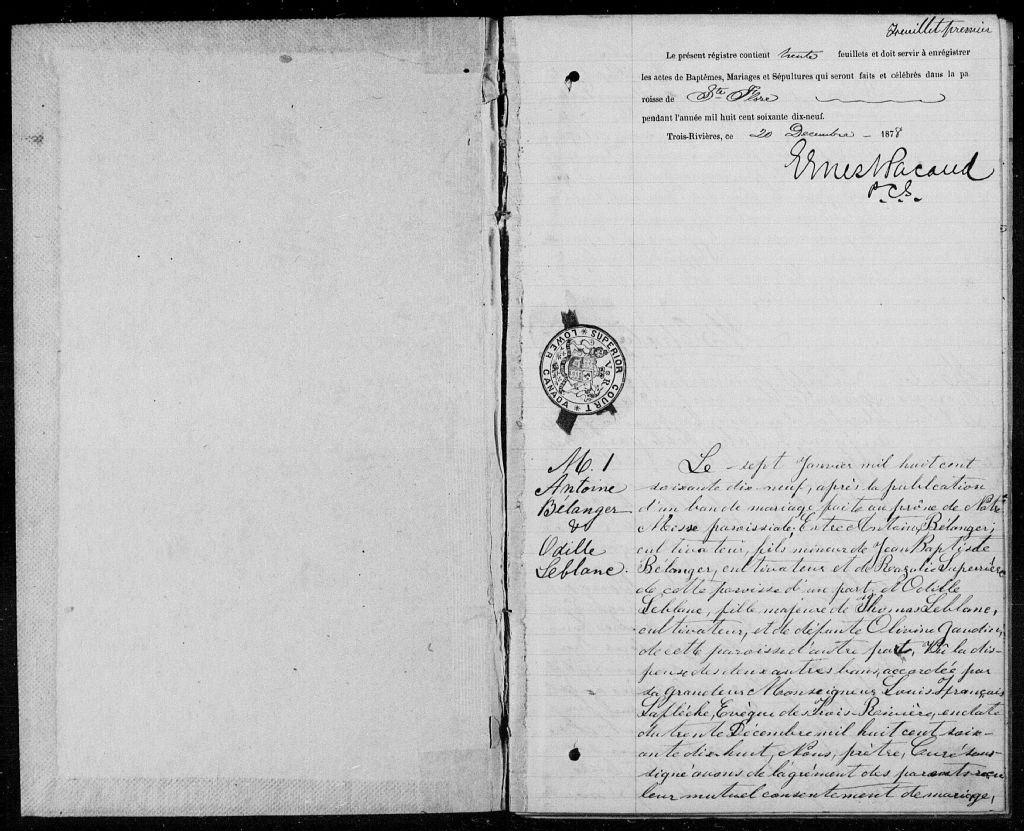 Feuillet premier
Le présent régistre contient trente feuillets et doit servir à enrégistrer
les actes de Baptêmes, Mariages et Sépultures qui seront faits et célébrés dans la pa
roisse de Ste Flore
pendant l'année mil huit cent soixante dix-neuf.
Trois-Rivières, ce 20 Decembre - 1878
Ernest Pacaud
P.C.S.
SUPERIOR COURT
LOWER CANADA
V & R
M. 1
Antoine
Bélanger
&
Odille
Leblanc.
Le sept Janvier mil huit cent
soixante dix-neuf, après la publication
d'un ban de mariage faite au prône de Notre
Messe paroissiale, Entre Antoine Bélanger,
cultivateur, fils mineur de Jean Baptiste
Bélanger, cultivateur et de
de cette paroisse d'un part, et Odille
Leblanc, fille majeure de Thomas Leblanc,
cultivateur, et de défunte Olivine
de cette paroisse d'autre part, Vû la dis-
pense des deux autres bans, accordée par
sa Grandeur Monseigneur Louis François
Laflèche, Evèque des Trois-Rivière, en date
du trente Décembre mil huit cent soix-
ante dix huit, Nous, prètre, Curé sous-
signé avons de l'agrément des parents reçu
leur mutuel consentement de mariage,